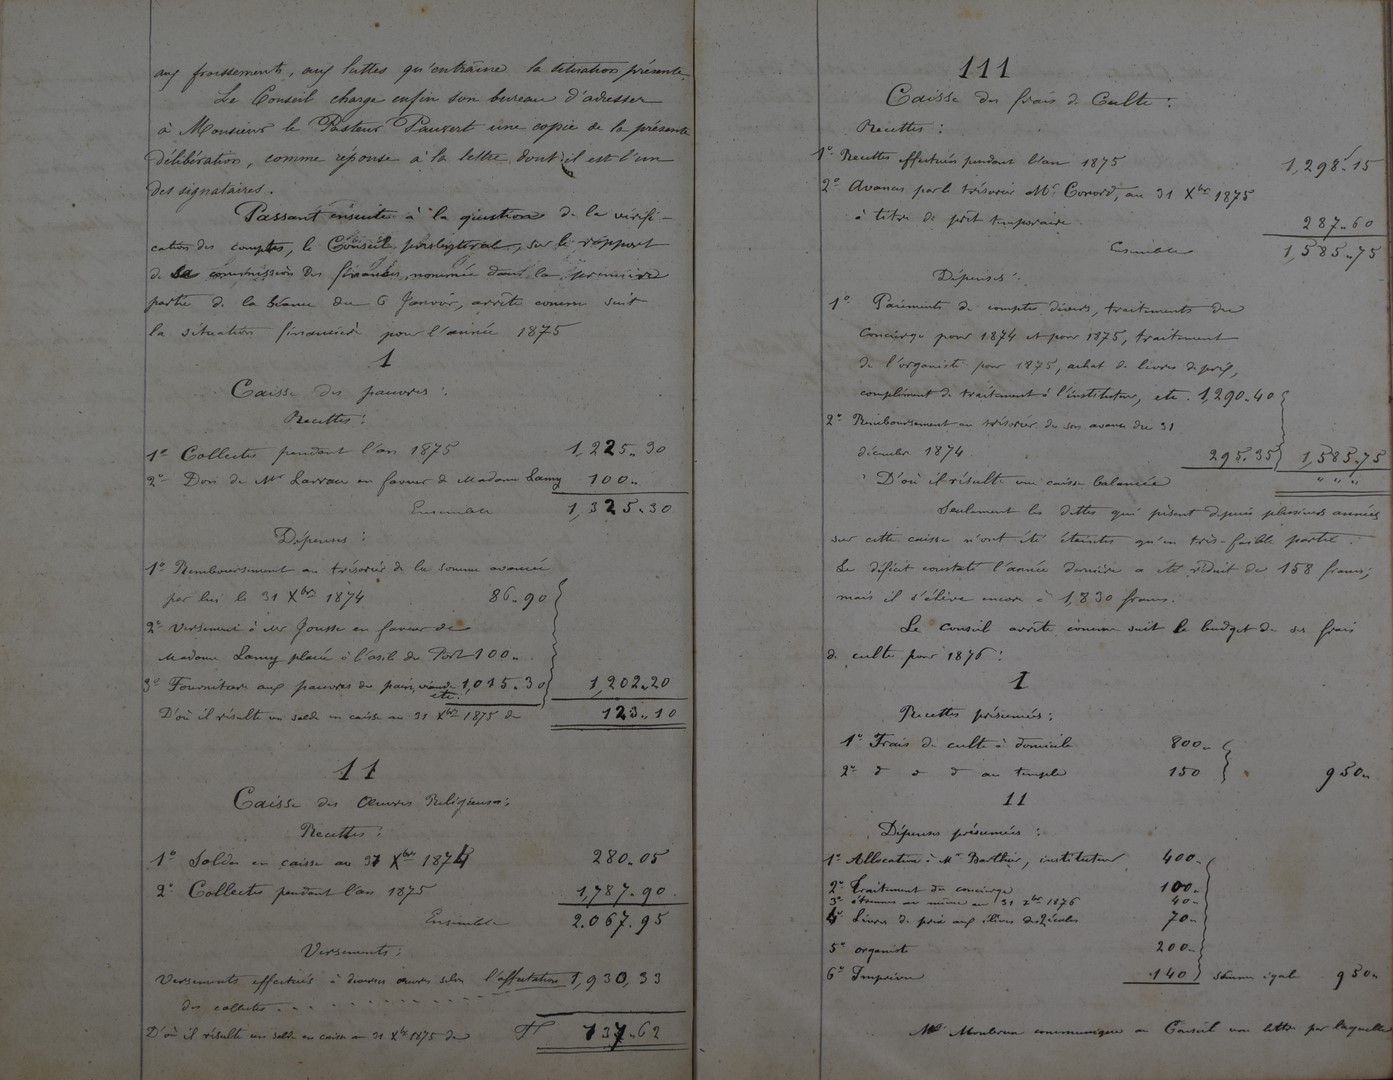 aux froissements, aux luttes qu'entraîne la situation présente.
Le Conseil charge enfin son bureau d'adresser
à Monsieur le Pasteur Pauvert une copie de la présente
délibération, comme réponse à la lettre dont il est l'un
des signataires.
Passant ensuite à la question de la vérifi-
cation des comptes, le Conseil presbytéral, sur le rapport
de sa commission des finances, nommée dans la première
partie de la séance du 6 Janvier, arrête comme suit
la situation financière pour l'année 1875
1
Caisse des pauvres :
Recettes :
1° Collectes pendant l'an 1875 1,225.30
2° Don de Mr Larrau en faveur de Madame Lamy 100"
Ensemble 1,325.30
Dépenses :
1° Remboursement au trésorier de la somme avancée
par lui le 31 Xbre 1874 86.90
2° Versement à Mr Jousse en faveur de
Madame Lamy placée à l'asile du Port 100"
3° Fournitures aux pauvres de pain, viande 1,015.30 1,202.20
etc.
D'où il résulte un solde en caisse au 31 Xbre 1875 de 123.10
11
Caisse des Œuvres Religieuses :
Recettes :
1° Solde en caisse au 31 Xbre 1874 280.05
2° Collectes pendant l'an 1875 1,787.90
Ensemble 2.067.95
Versements :
Versements effectués à diverses œuvres selon l'affectation 1,930,33
des collectes . . . . . . . . . . .
D'où il résulte un solde en caisse au 31 Xbre 1875 de 137.62
111
Caisse des frais de Culte :
Recettes :
1° Recettes effectuées pendant l'an 1875 1,298.15
2° Avances par le trésorier Mr Conord, au 31 Xbre 1875
à titre de prêt temporaire 287.60
Ensemble 1,585.75
Dépenses :
1° Paiements de comptes divers, traitements du
Concierge pour 1874 et pour 1875, traitement
de l'organiste pour 1875, achat de livres de prix,
complément de traitement à l'instituteur, etc. 1,290.40
2° Remboursement au trésorier de son avance du 31
décembre 1874 295.35 1,585.75
D'où il résulte une caisse balancée " " "
Seulement les dettes qui pèsent depuis plusieurs années
sur cette caisse n'ont été éteintes qu'en très-faible partie.
Le déficit constaté l'année dernière a été réduit de 158 francs ;
mais il s'élève encore à 1,830 francs.
Le conseil arrête comme suit le budget de ses frais
de culte pour 1876 :
1
Recettes présumées :
1° Frais de culte à domicile 800"
2° d d d au temple 150 950"
11
Dépenses présumées :
1° Allocation à Mr Barthier, instituteur 400"
2° Traitement du concierge 100"
3° étrennes au même au 31 Xbre 1876 40"
4° Livres de prix aux élèves des 2 écoles 70"
5° organiste 200"
6° Imprévu 140 somme égale 950"
Mr communique au Conseil une lettre par laquelle